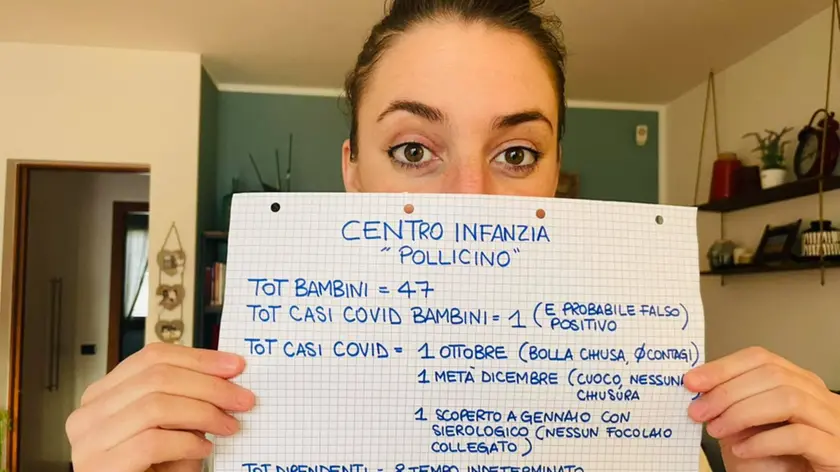 CENTRO INFANZIA
"POLLICINO"
TOT BAMBINI = 47
TOT CASI COVID BAMBINI = 1 (E PROBABILE FALSO POSITIVO)
TOT CASI COVID = 1 OTTOBRE (BOLLA CHIUSA, Ø CONTAGI)
1 METÀ DICEMBRE (CUOCO, NESSUNA
CHIUSURA
1 SCOPERTO A GENNAIO CON
SIEROLOGICO (NESSUN FOCOLAIO
COLLEGATO)
TOT DIPENDENTI = 8 TEMPO INDETERMINATO